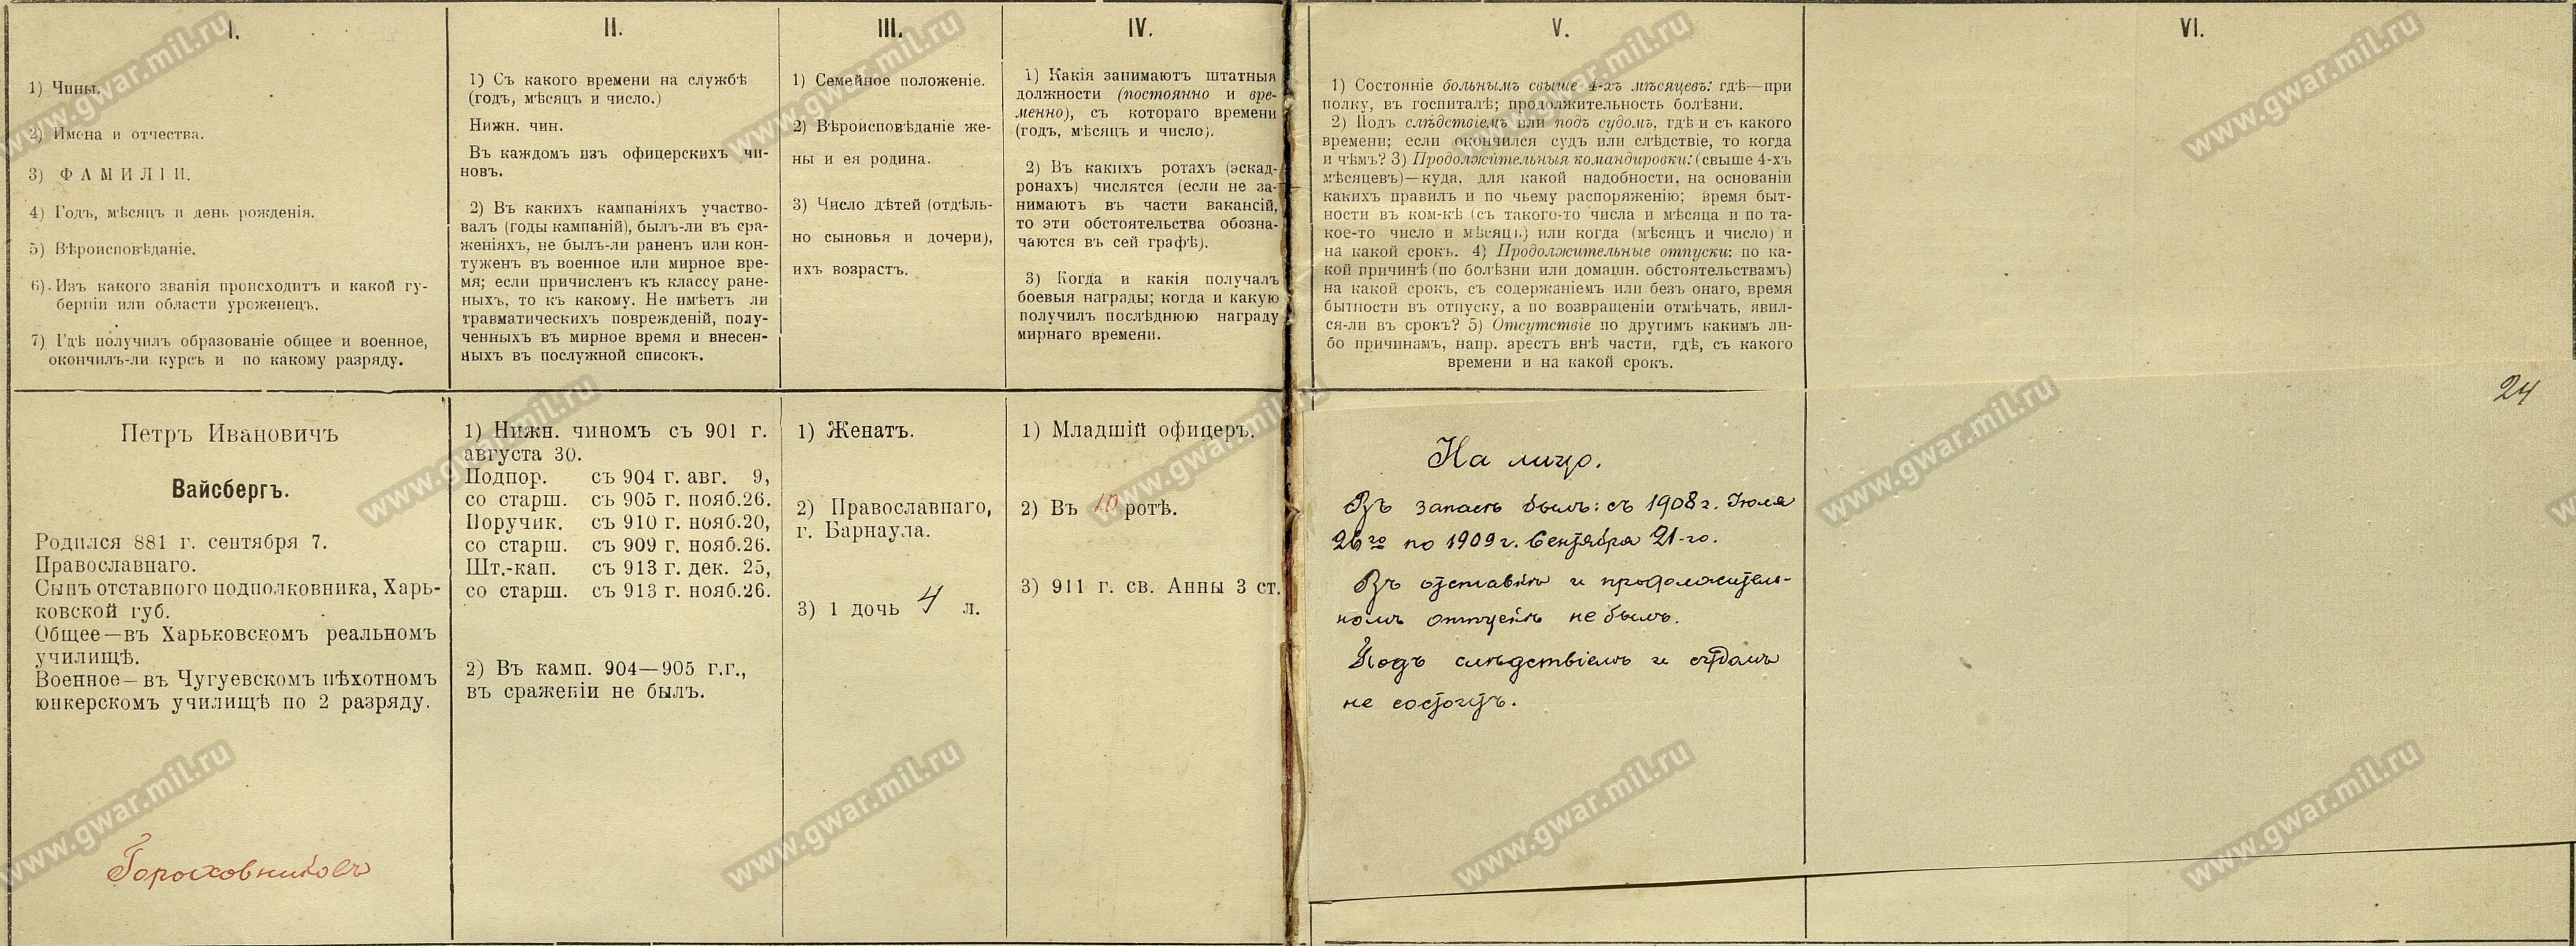 I.
1) Чины.
2) Имена и отчества.
3) ФАМИЛІИ.
4) Годъ, мѣсяцъ и день рожденія.
5) Вѣроисповѣданіе.
6) Изъ какого званія происходитъ и какой гу-
берніи или области уроженецъ.
7) Гдѣ получилъ образованіе общее и военное,
окончилъ-ли курсъ и по какому разряду.
II.
1) Съ какого времени на службѣ
(годъ, мѣсяцъ и число.)
Нижн. чин.
Въ каждомъ изъ офицерскихъ чи-
новъ.
2) Въ какихъ кампаніяхъ участво-
валъ (годы кампаній), былъ-ли въ сра-
женіяхъ, не былъ-ли раненъ или кон-
туженъ въ военное или мирное вре-
мя; если причисленъ къ классу ране-
ныхъ, то къ какому. Не имѣетъ ли
травматическихъ поврежденій, полу-
ченныхъ въ мирное время и внесен-
ныхъ въ послужной списокъ.
III.
1) Семейное положеніе.
2) Вѣроисповѣданіе же-
ны и ея родина.
3) Число дѣтей (отдѣль-
но сыновья и дочери),
ихъ возрастъ.
IV.
1) Какія занимаютъ штатныя
должности (постоянно и вре-
менно), съ котораго времени
(годъ, мѣсяцъ и число).
2) Въ какихъ ротахъ (эскад-
ронахъ) числятся (если не за-
нимаютъ въ части вакансій,
то эти обстоятельства обозна-
чаются въ сей графѣ).
3) Когда и какія получалъ
боевыя награды; когда и какую
получилъ послѣднюю награду
мирнаго времени.
V.
1) Состояніе больнымъ свыше 4-хъ мѣсяцевъ: гдѣ—при
полку, въ госпиталѣ; продолжительность болѣзни.
2) Подъ слѣдствіемъ или подъ судомъ, гдѣ и съ какого
времени; если окончился судъ или слѣдствіе, то когда
и чѣмъ? 3) Продолжительныя командировки: (свыше 4-хъ
мѣсяцевъ)—куда, для какой надобности, на основаніи
какихъ правилъ и по чьему распоряженію; время быт-
ности въ ком-кѣ (съ такого-то числа и мѣсяца и по та-
кое-то число и мѣсяцъ) или когда (мѣсяцъ и число) и
на какой срокъ. 4) Продолжительные отпуски: по ка-
кой причинѣ (по болѣзни или домашн. обстоятельствамъ)
на какой срокъ, съ содержаніемъ или безъ онаго, время
бытности въ отпуску, а по возвращеніи отмѣчать, явил-
ся-ли въ срокъ? 5) Отсутствіе по другимъ какимъ ли-
бо причинамъ, напр. арестъ внѣ части, гдѣ, съ какого
времени и на какой срокъ.
VI.
24
Петръ Ивановичъ
Вайсбергъ.
Родился 881 г. сентября 7.
Православнаго.
Сынъ отставного подполковника, Харь-
ковской губ.
Общее—въ Харьковскомъ реальномъ
училищѣ.
Военное—въ Чугуевскомъ пѣхотномъ
юнкерскомъ училищѣ по 2 разряду.
Гороховниковъ
1) Нижн. чиномъ съ 901 г.
августа 30.
Подпор. съ 904 г. авг. 9,
со старш. съ 905 г. нояб.26.
Поручик. съ 910 г. нояб.20,
со старш. съ 909 г. нояб.26.
Шт.-кап. съ 913 г. дек. 25,
со старш. съ 913 г. нояб.26.
2) Въ камп. 904—905 г.г.,
въ сраженіи не былъ.
1) Женатъ.
2) Православнаго,
г. Барнаула.
3) 1 дочь 4 л.
1) Младшій офицеръ.
2) Въ 10 ротѣ.
3) 911 г. св. Анны 3 ст.
На лицо.
Въ запасѣ былъ: съ 1908 г. Іюля
26го по 1909 г. Сентября 21-го.
Въ отставкѣ и продолжитель-
номъ отпускѣ не былъ.
Подъ слѣдствіемъ и судомъ
не состоитъ.
www.gwar.mil.ru
www.gwar.mil.ru
www.gwar.mil.ru
www.gwar.mil.ru
www.gwar.mil.ru
www.gwar.mil.ru
www.gwar.mil.ru
www.gwar.mil.ru
www.gwar.mil.ru
www.gwar.mil.ru
www.gwar.mil.ru